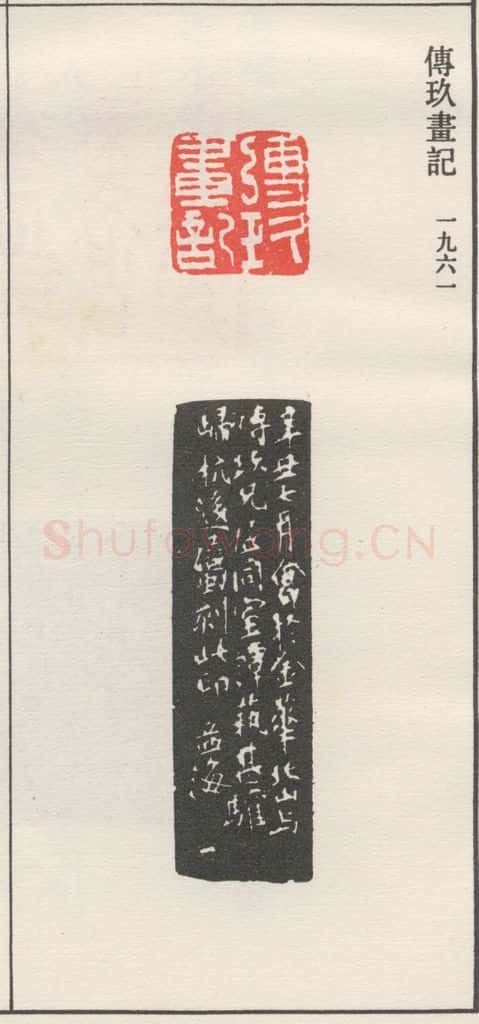 傳玖畫記 一九六一
傳玖
畫記
辛丑七月會於金華北山与
傳玖兄住同室譚藝甚驩
歸杭後刻此印 海
Shufawang.CN